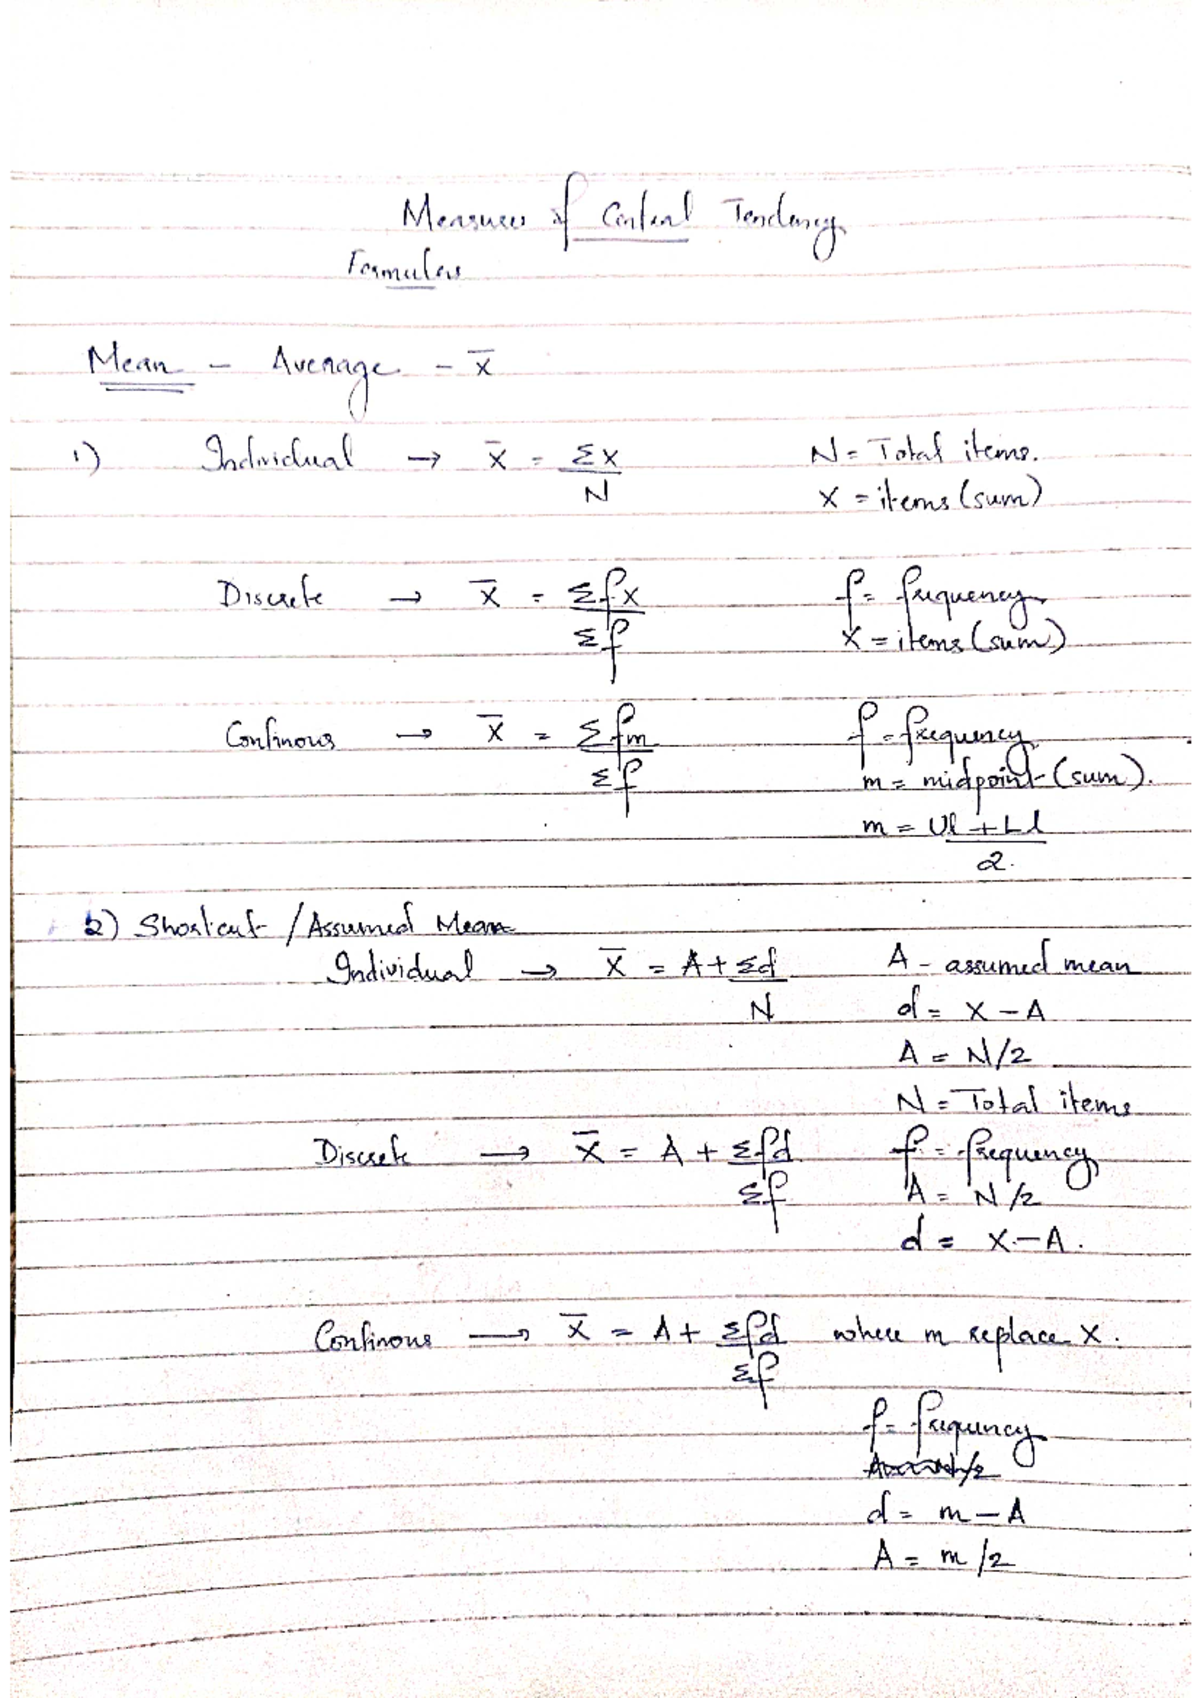 Measures of Central Tendency
Formulas
Mean - Average - x̄
1) Individual → x̄ = Σx/N N = Total items.
x = items (sum)
Discrete → x̄ = Σfx/Σf f = frequency
x = items (sum)
Continous → x̄ = Σfm/Σf f = frequency
m = midpoint (sum).
m = Ul + Ll/2.
2) Shortcut / Assumed Mean
Individual → x̄ = A + Σd/N A - assumed mean
d = x - A
A = N/2
N = Total items
Discrete → x̄ = A + Σfd/Σf f = frequency
A = N/2
d = x - A.
Continous → x̄ = A + Σfd/Σf where m replace x.
f = frequency
d = m - A
A = m/2